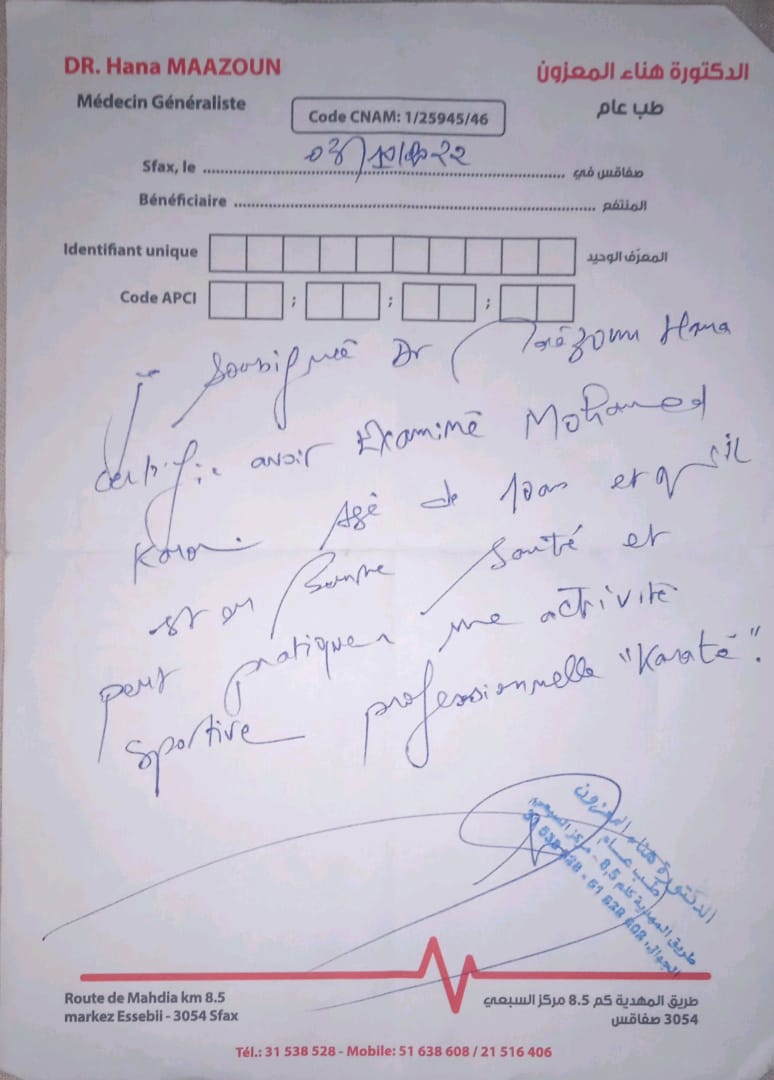 DR. Hana MAAZOUN
الدكتورة هناء المعزون
Médecin Généraliste
طب عام
Code CNAM: 1/25945/46
Sfax, le 03/10/2022 صفاقس في
Bénéficiaire المنتفع
Identifiant unique المعرّف الوحيد
Code APCI ; ; ;
Je soussignée Dr Maézoun Hana
certifie avoir Examiné Mohamed
Agé de 10 ans et qu'il
est en bonne santé et
peut pratiquer une activité
sportive professionnelle "Karaté".
الدكتورة هناء المعزون
طب عام
طريق المهدية كلم 8,5 - مركز السبعي
الجوال: 51 638 608 - 31 538 528
Route de Mahdia km 8.5
markez Essebii - 3054 Sfax
طريق المهدية كم 8.5 مركز السبعي
3054 صفاقس
Tél.: 31 538 528 - Mobile: 51 638 608 / 21 516 406